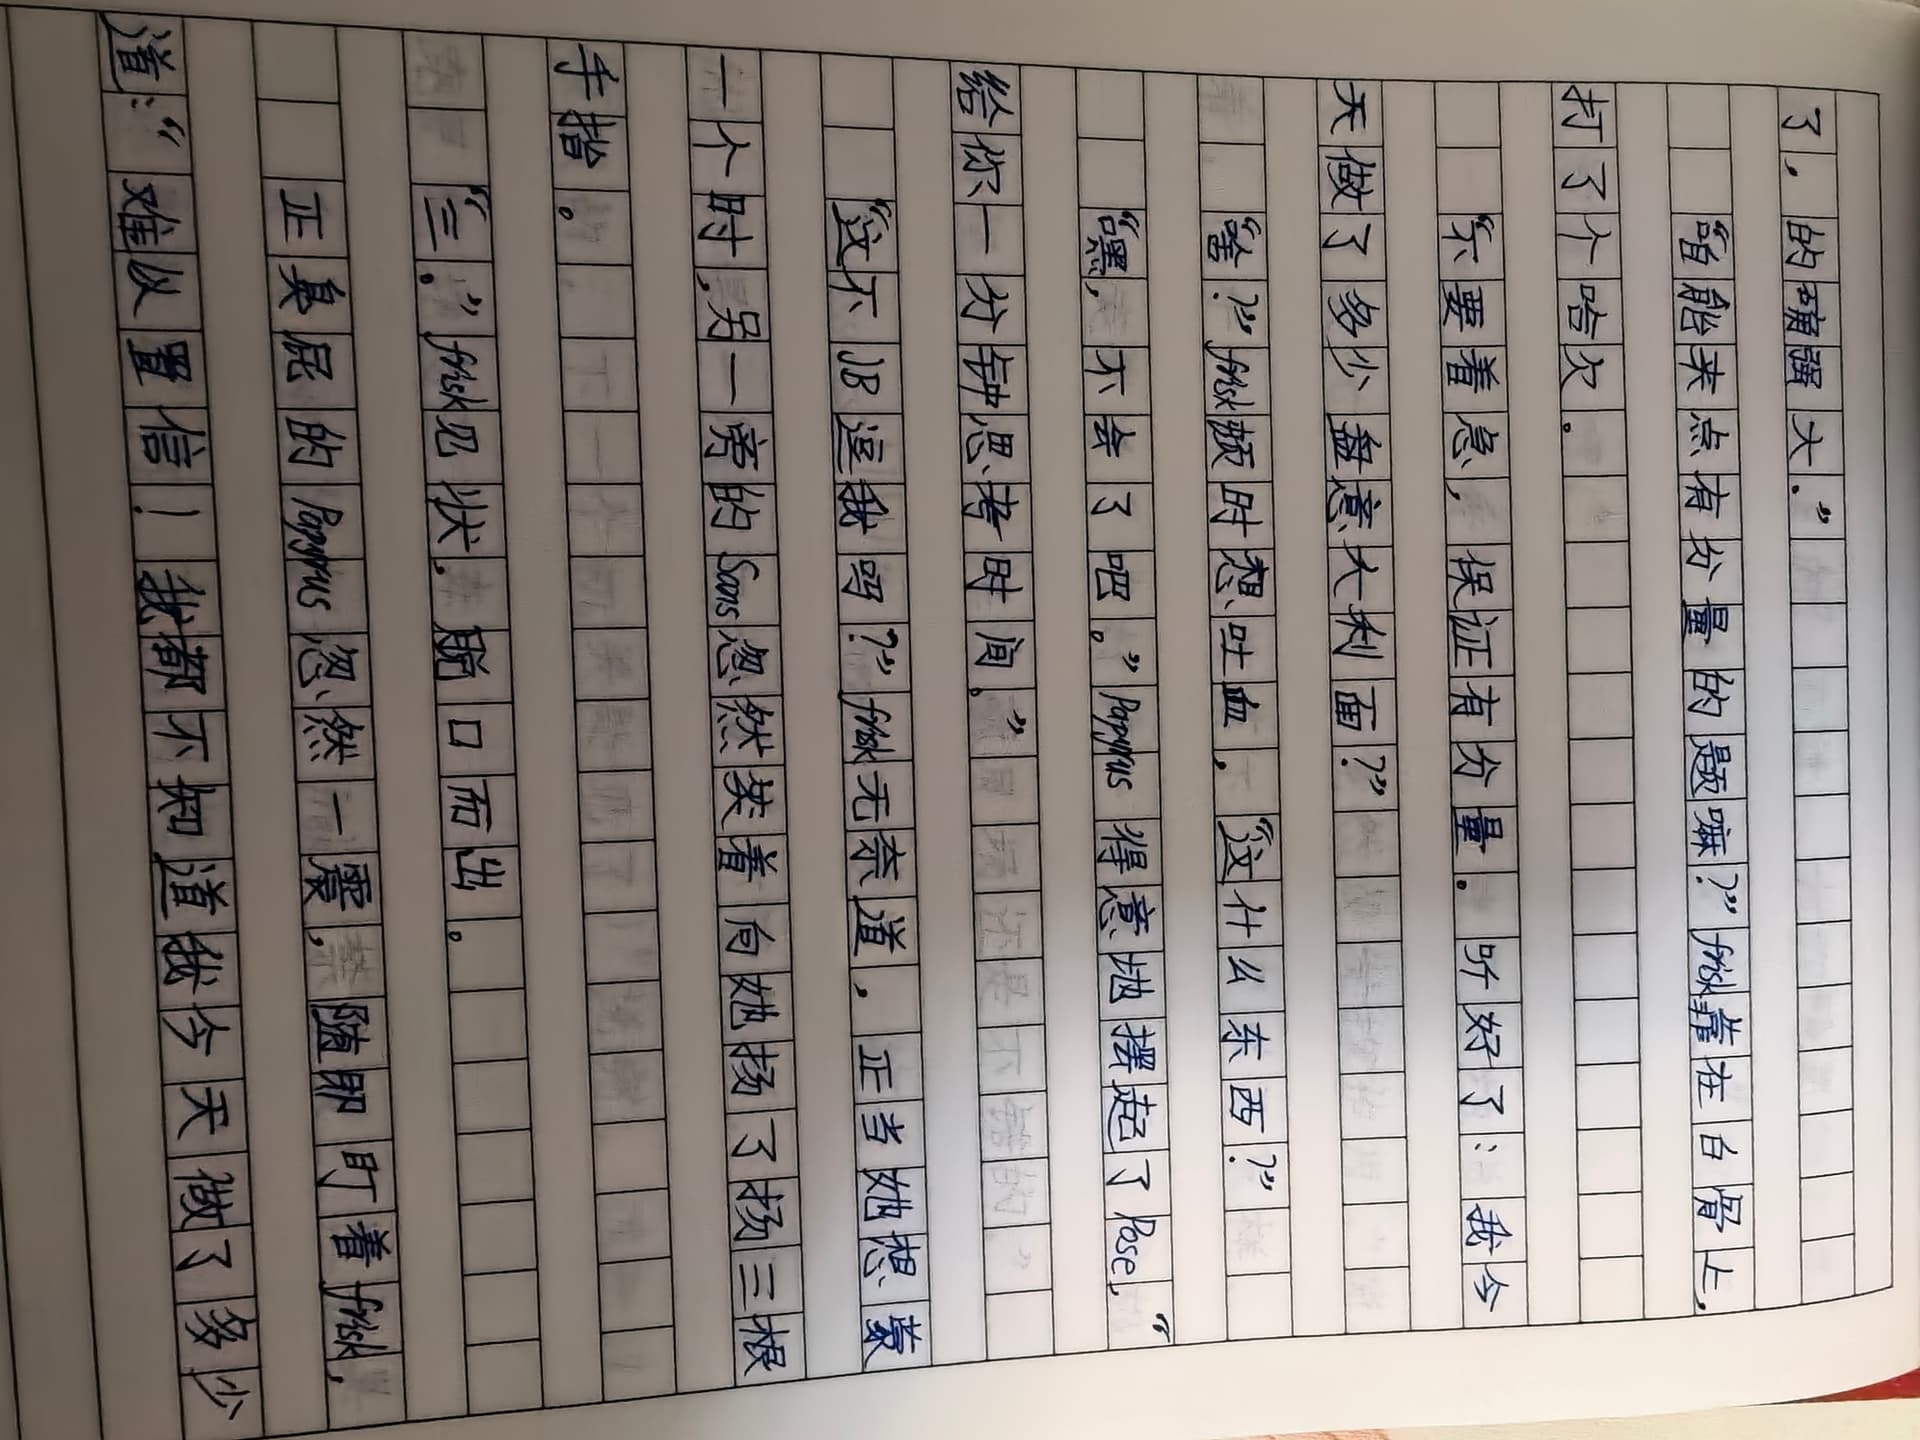 了，的确强大。”
“咱能来点有份量的题嘛？”frisk靠在白骨上，
打了个哈欠。
“不要着急，保证有分量。听好了：我今
天做了多少盘意大利面？”
“啥？”frisk顿时想吐血，“这什么东西？”
“嘿，不会了吧。”Papyrus得意地摆起了Pose，“
给你一分钟思考时间。”
“这不JB逗我吗？”frisk无奈道，正当她想蒙
一个时，另一旁的Sans忽然笑着向她扬了扬三根
手指。
“三。”frisk见状，脱口而出。
正臭屁的Papyrus忽然一震，随即盯着frisk，
道：“难以置信！我都不知道我今天做了多少